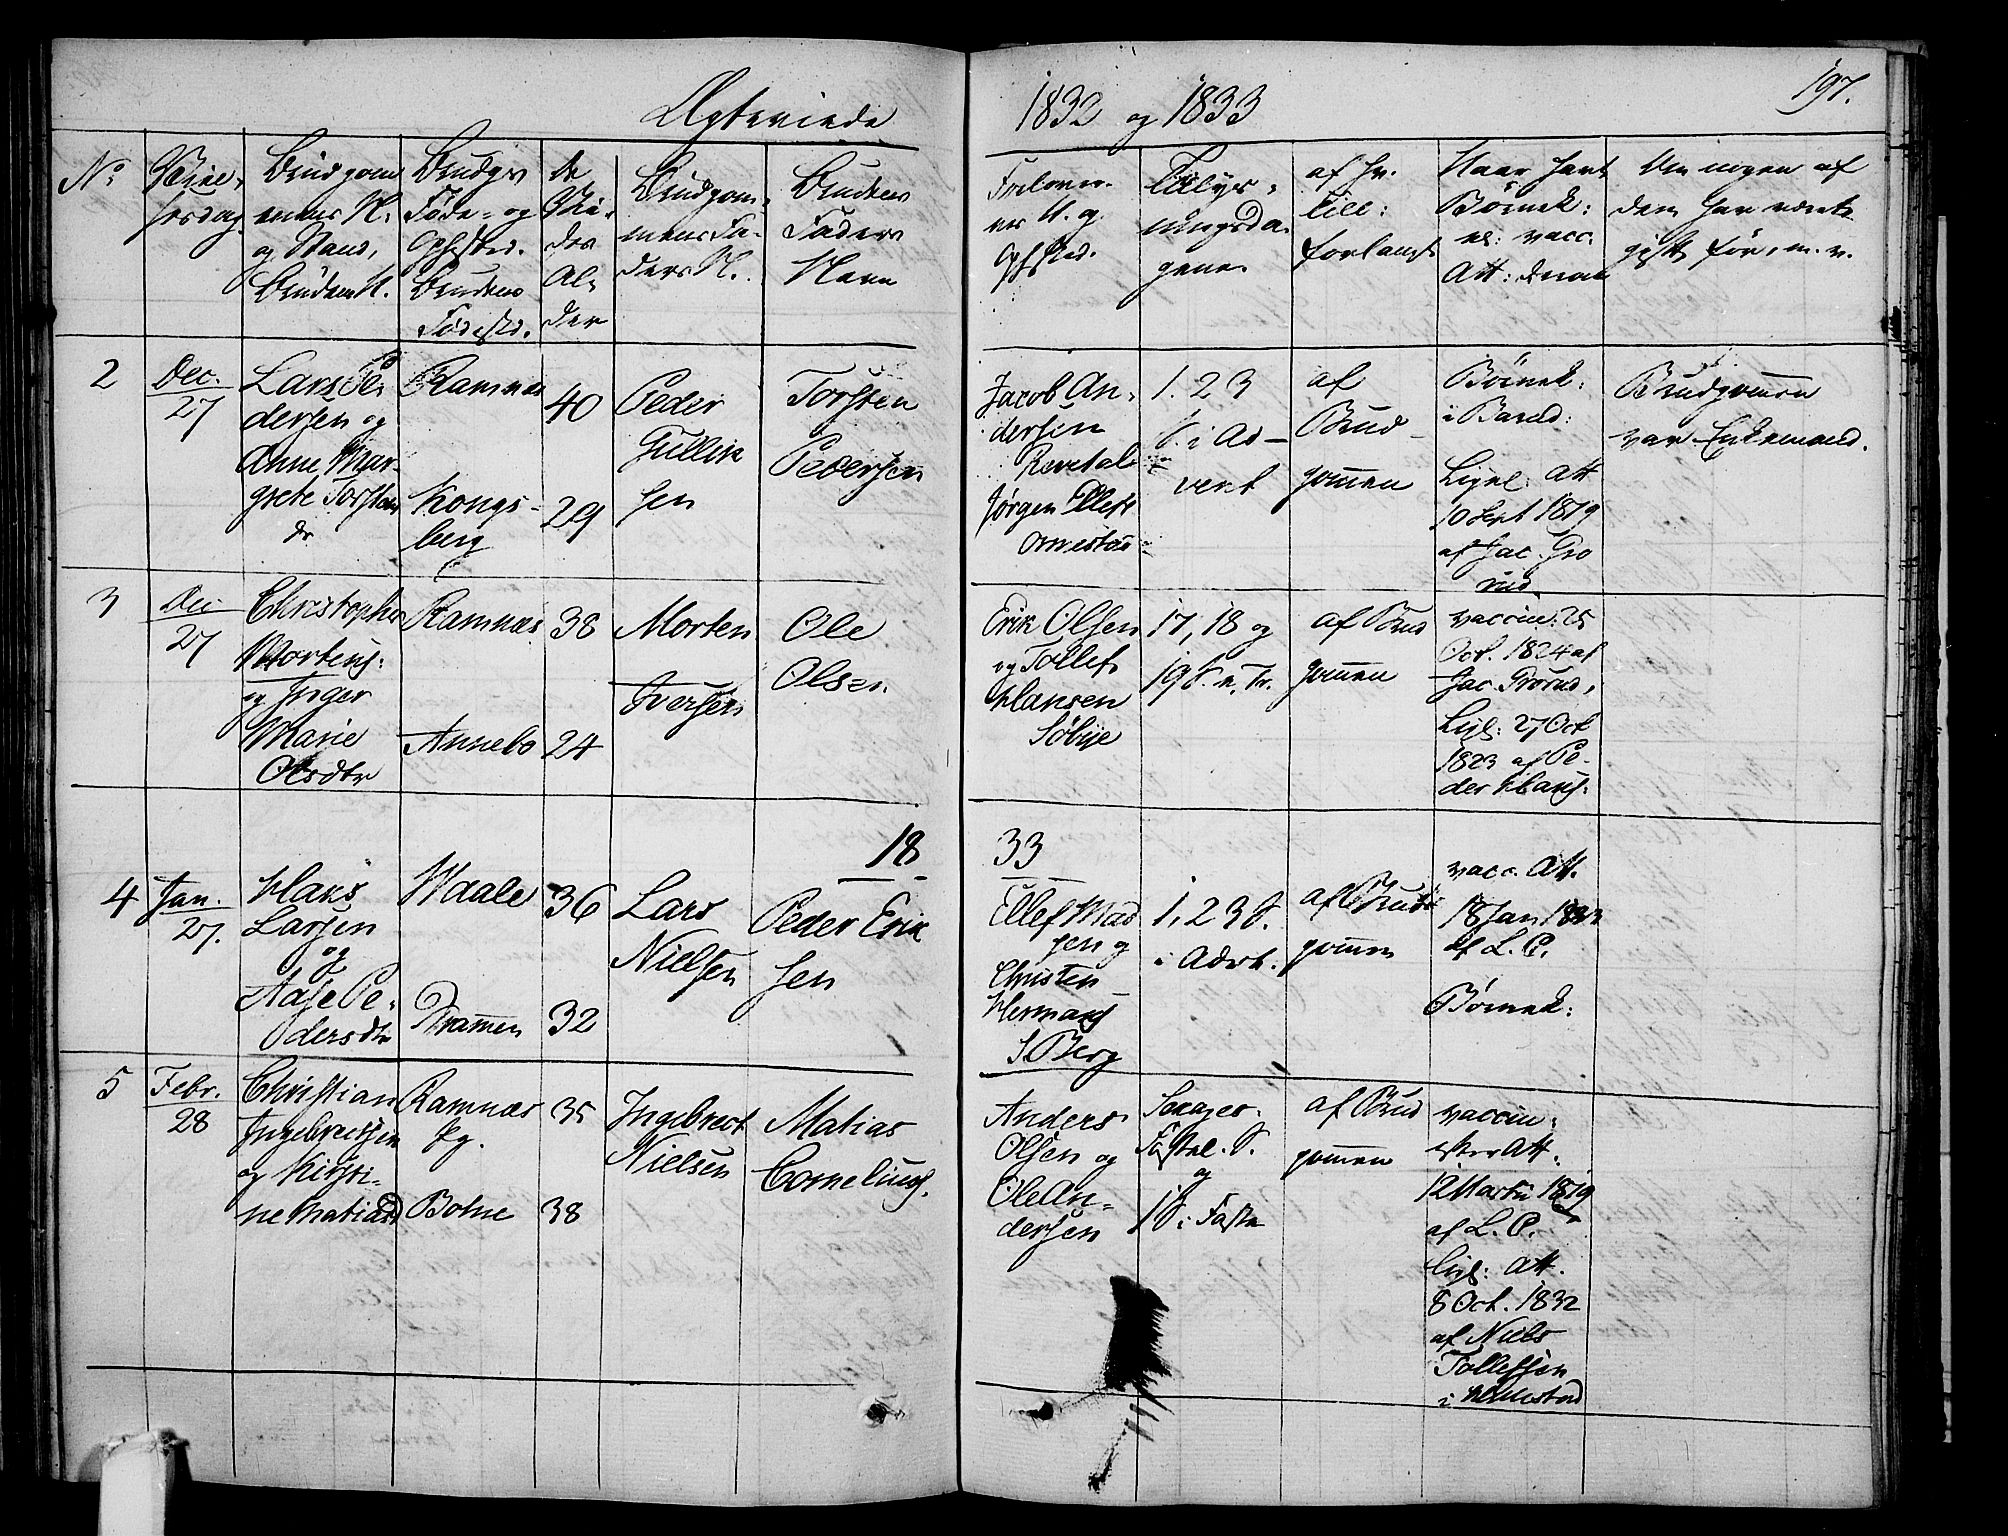 Ægteviede
1832 og 1833
197.
No
Vielsesdag
Brudgom
mens N.
og Stand,
Brudens N.
Brudgs
Føde- og
Opholdsted.
Brudens
Fødested.
de
Vi-
des
Al-
der
Brudgom-
mens Fa-
ders N.
Brudens
Faders
Navn
Forlover-
nes N. og
Opholdsted.
Tillys-
ningsda-
gene.
af hv.
till:
forlangt
Naar havt
Børnek:
el: vacc.
Att: derom
Om nogen af
dem har været
gift før, m. v.
2
Dec.
27
Lars Pe-
dersen og
Anne Mar-
grete Torsten
dr
Ramnæs
Kongs-
berg
40
29
Peder
Gullik
sen
Torsten
Pedersen
Jacob An-
dersen
Revetal
Jørgen Ellefs
1. 2 3
S. i Ad-
vent
af
Brud-
gommen
Børnek:
i Barnd:
Ligel. Att
10 Sept 1819
af Jac. Gro
rud.
Brudgommen
var Enkemand.
3
Dec
27
Christopher
Mortens:
og Inger
Marie
Olsdtr
Ramnæs
Annebo
38
24
Morten
Iversen
Ole
Olsen
Erik Olsen
og Tollef
Hansen
Søbye
17, 18 og
19 S. e. Tr.
af Brud
gommen
vaccin: 25
Oct. 1824 af
Jac. Grorud,
Ligl: 27 Oct
1823 af Pe-
der Hans:
18
33
4
Jan.
27.
Hans
Larsen
og
Aase Pe-
dersdtr
Waale
Drammen
36
32
Lars
Nielsen
Peder Erik
sen
Ellef Mad
sen og
Christen
Hermans
S. Berg
1, 2 3 S.
i Advt.
af Brud
gommen
vacc. Att.
18 Jan 1833
af L. P.
Børnek:
5
Febr.
28
Christian
Ingebretsen
og Kirsti-
ne Matiasd
Ramnæs
Pg.
Botne
35
38
Ingebrect
Nielsen
Matias
Cornelius.
Anders
Olsen og
Ole An-
dersen
Sexages.
Fastel. S.
og
1 S. i Faste
af Brud
gommen
vaccin:
efter Att.
12 Martii 1819
af L. P.
Ligl: Att.
8 Oct. 1832
af Niels
Tollefsen
i Hillestad